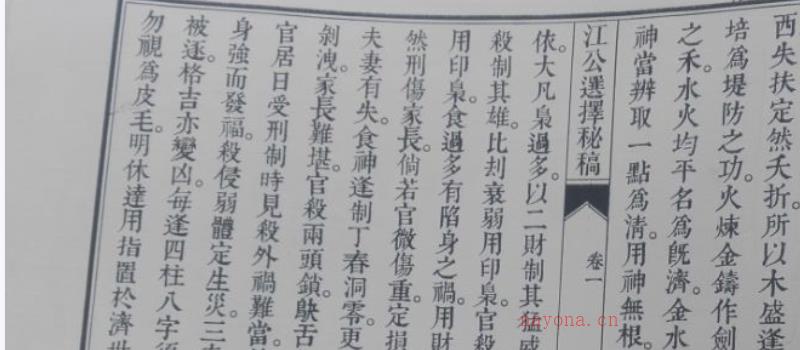 西失扶定然夭折。所以木盛逢
培爲堤防之功。火煉金鑄作劍
之禾。水火均平名爲既濟。金水
神當辨取一點爲淸。用神無根。
江公選擇秘稿
卷一
依。大凡梟過多。以二財制其猛威
殺制其雄。比刦衰弱用印梟。官殺
用印梟。食過多有陷身之禍。用財
然刑傷家長。倘若官微傷重。定損
夫妻有失。食神逢制丁春洞零。更
剝洩。家長難堪。官殺兩頭鎖。鴃舌
官居日受刑制時見殺外禍難當。
身強而發福。殺侵弱體定生災。三
被逐。格吉亦變凶。每逢四柱八字須
勿視爲皮毛。明休達用指置於濟世
nayona.cn